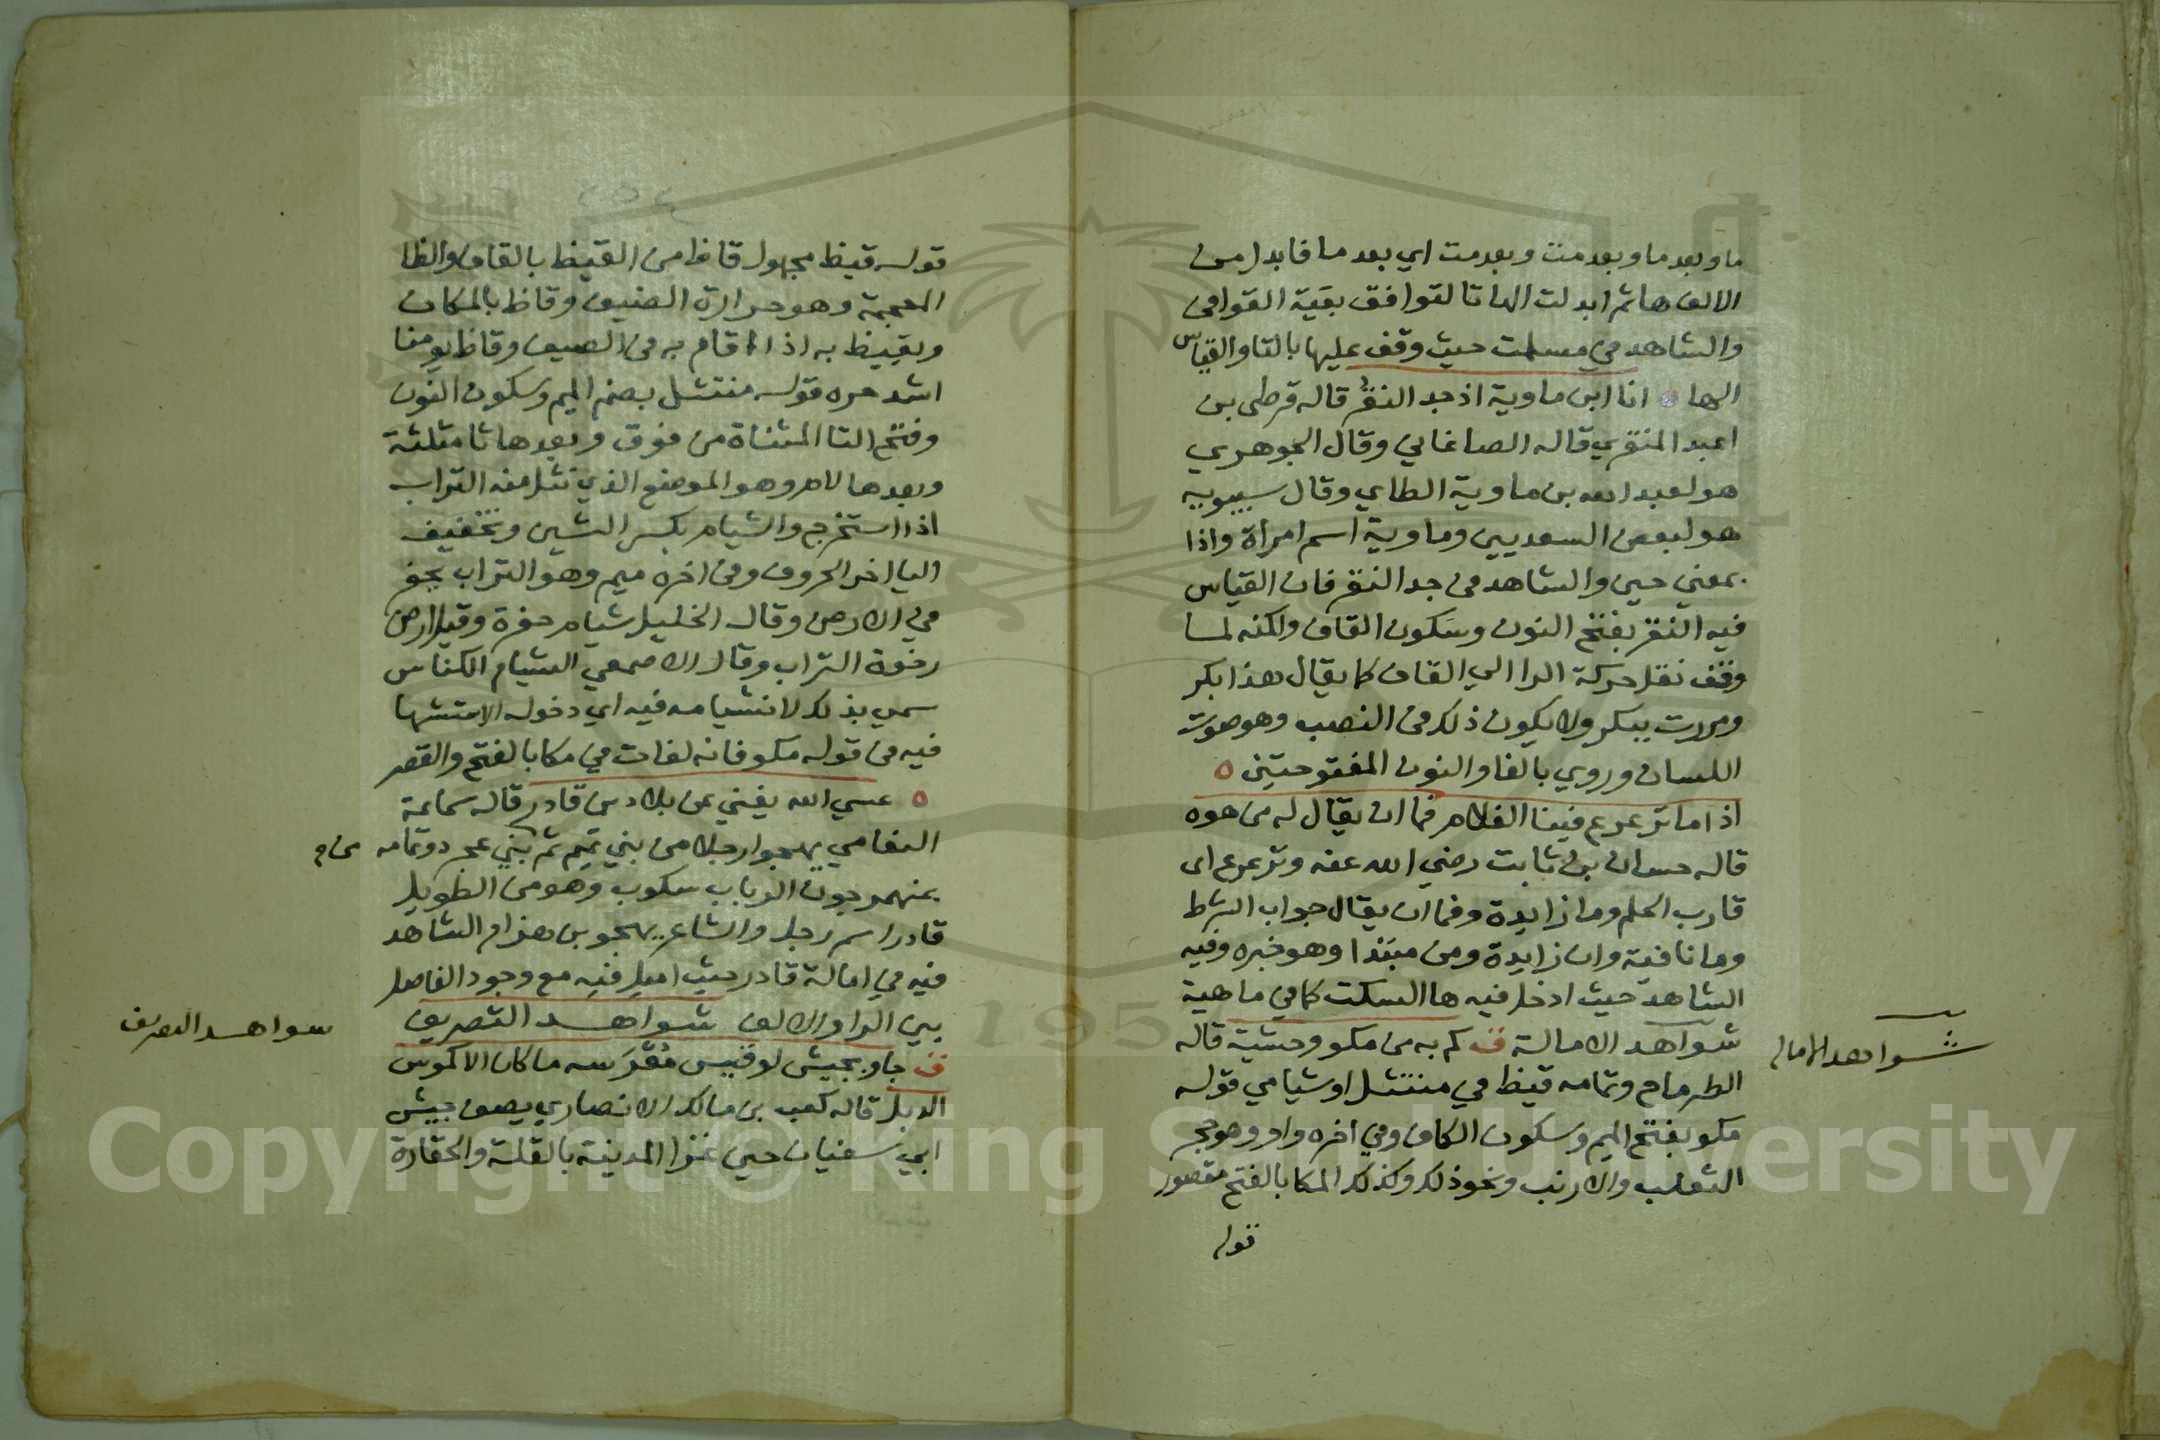 ما وبعدما وبعدمت وبعدمت اي بعدما فابدل من
الالف ها ثم ابدلت الها تا لتوافق بقية القوافي
والشاهد في مسلمت حيث وقف عليها بالتا والقياس
الها ه انا ابن ماوية اذ جد النقر قاله قرطي بن
اعبد المنقري قاله الصاغاني وقال الجوهري
هو لعبد الله بن ماوية الطاي وقال سيبويه
هو لبعض السعديين وماوية اسم امراة واذا
بمعني حين والشاهد في جد النقر فان القياس
فيه النقر بفتح النون وسكون القاف ولكنه لما
وقف نقل حركة الرا الي القاف كما يقال هذا بكر
ومررت ببكر ولا يكون ذلك في النصب وهو صوت
اللسان وروي بالفا والنون المفتوحتين ه
اذا ما ترعرع فينا الغلام فما ان يقال له من هوه
قاله حسان بن ثابت رضي الله عنه وترعرع اى
قارب الحلم وما زايدة وفما ان يقال جواب الشرط
وما نافية وان زايدة ومن مبتدا وهو خبره وفيه
الشاهد حيث ادخل فيه ها السكت كما في ماهية
شواهد الامالة ف كم به من مكو وحشية قاله
شواهد الاماله
الطرماح وتمامه قيظ في منتثل او شيامي قوله
مكو بفتح الميم وسكون الكاف وفي اخره واو وهو جحر
الثعلب والارنب ونحو ذلك وكذلك المكا بالفتح مقصور
قوله
قوله قيظ مجهول قاظ من القيظ بالقاف والظا
المعجمة وهو حرارة الصيف وقاظ بالمكان
وبقيظ به اذا اقام به في الصيف وقاظ يومنا
اشد حره قوله منتثل بضم الميم وسكون النون
وفتح التا المثناة من فوق وبعدها ثا مثلثة
وبعدها لام وهو الموضع الذي نثل منه التراب
اذا استخرج والشيام بكسر الشين وتخفيف
اليا اخر الحروف وفي اخره ميم وهو التراب يحفر
في الارض وقال الخليل شيام حفرة وقيل ارض
رخوة التراب وقال الاصمعي الشيام الكناس
سمي بذلك لانشيامه فيه اي دخوله الاستشها
فيه في قوله مكو فانه لغات في مكا بالفتح والقصر
ه عسي الله يغني عن بلاد بن قادر قاله سماعة
النعامي يهجوا رجلا من بني تميم ثم بني عجرد وتمامه
بمنهمر جون الرباب سكوب وهو من الطويل
قادر اسم رجل والشاعر يهجو بن هزام الشاهد
فيه في امالة قادر حيث اميل فيه مع وجود الفاصل
بين الرا والالف شواهد التصريف
شواهد التصريف
ف جاو بجيش لو قيس معرسه ما كان الا كموس
الدبل قاله كعب بن مالك الانصاري يصف جيش
ابي سفيان حين غزا المدينة بالقلة والحقارة
Copyright © King Saud University
195